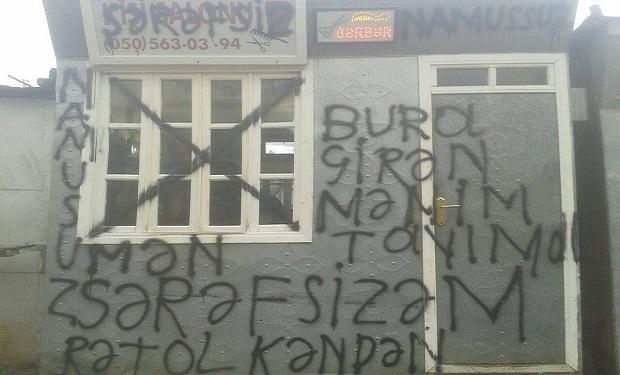 KİŞİ SALONU
ŞƏRƏFSİZ
(050) 563·03·94
BƏRBƏR
NAMUSUZ
BURA
GİRƏN
MƏNİM
TAYIMdI
MƏN
SƏRƏFSİZƏM
RƏTOL KƏNDƏN